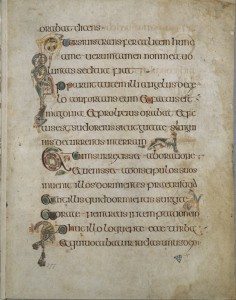 orabat dicens
Pater si uis transfer calicem hunc
a me uerum tamen non mea uo
luntas sed tua fiat
Apparuit autem illi angelus de cae
lo confortans eum et factus est
in agonia et prolixius orabat et fac
tus est sudor eius sicut guttae sangui
nis decurrentis in terram
Et cum surrexisset ab oratione
et uenisset ad discipulos suos in
uenit illos dormientes prae tristitia
et ait illis quid dormitis surgite
orate ne intretis in temptationem
Adhuc illo loquente ecce turba
et qui uocabatur iudas unus de